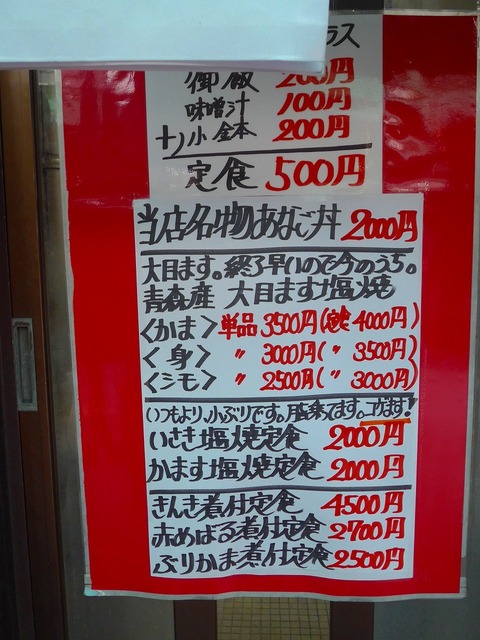 ラス
御飯 200円
味噌汁 100円
小金本 200円
定食 500円
当店名物あなご丼 2000円
大目ます。終了早いので今のうち。
青森産 大目ます塩焼
〈かま〉 単品 3500円(定食 4000円)
〈身〉 〃 3000円(〃 3500円)
〈シモ〉 〃 2500円(〃 3000円)
いつもより、小ぶりです。脂乗ってます。コウます!
いさき塩焼定食 2000円
かます塩焼定食 2000円
きんき煮付定食 4500円
赤めばる煮付定食 2700円
ぶりかま煮付定食 2500円